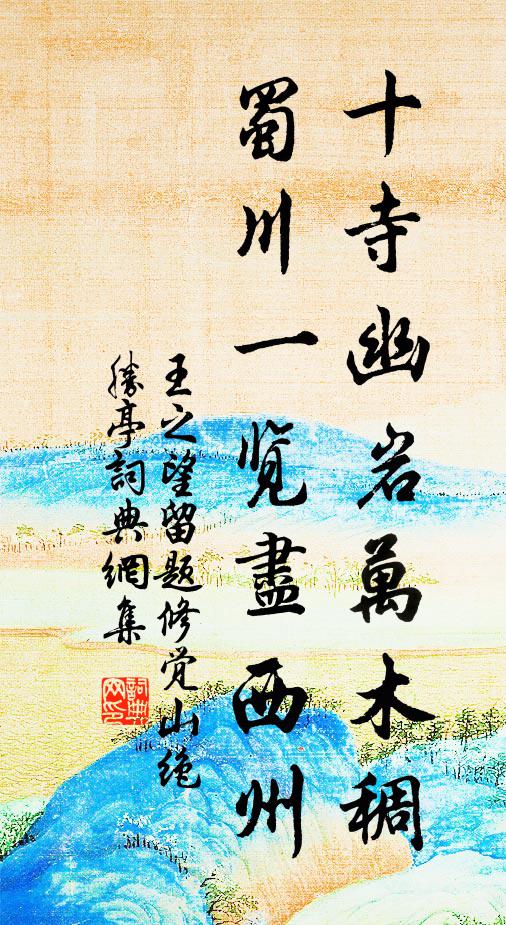 十寺幽岩萬木稠
蜀川一覧盡西州
王之望留题修觉山绝
勝亭詞典網集
詞典网印